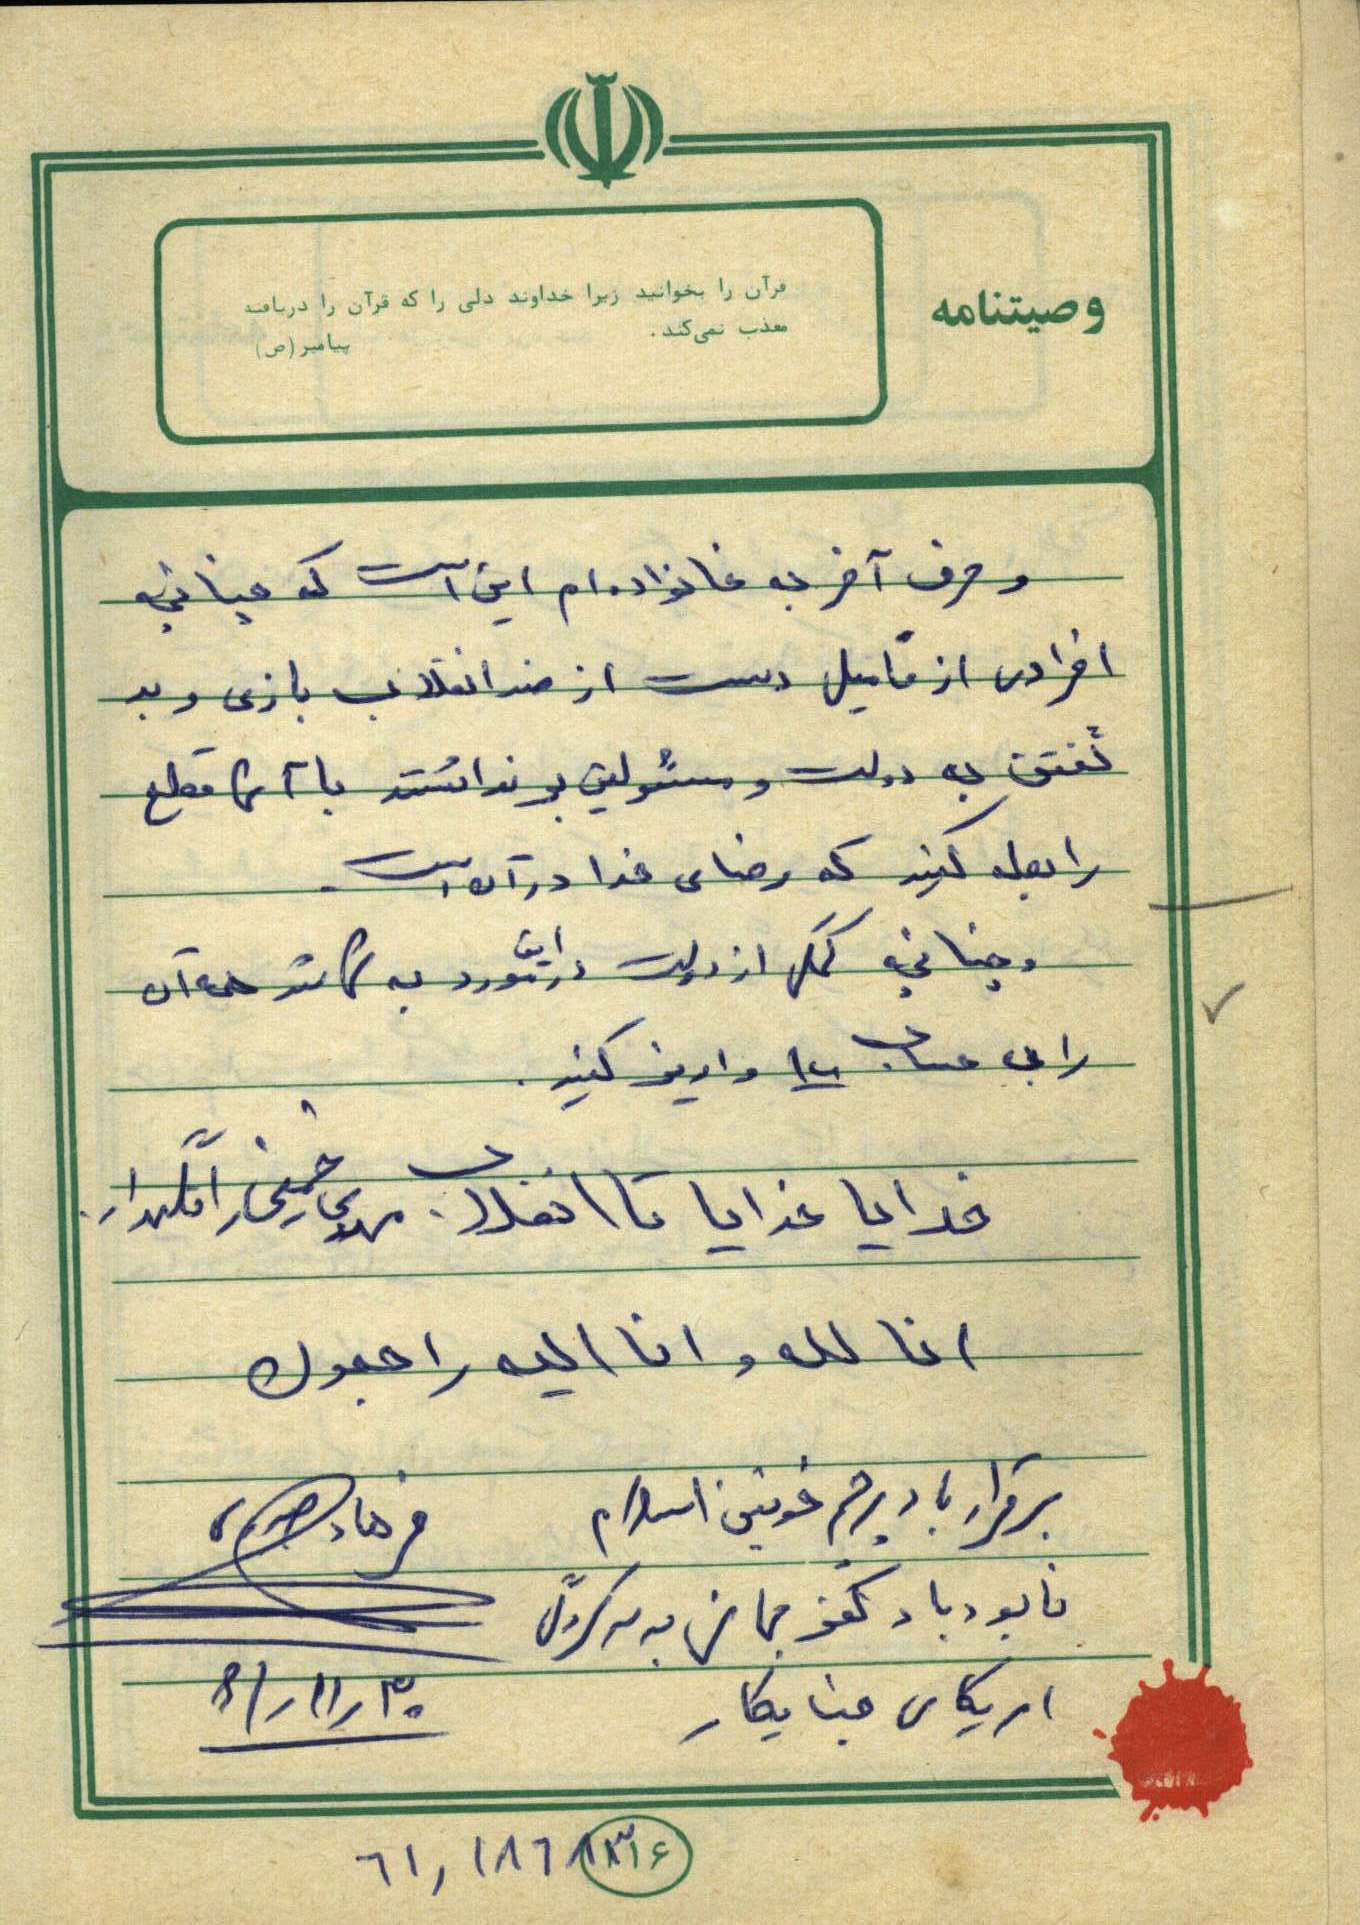 وصیتنامه
قرآن را بخوانید زیرا خداوند دلی را که قرآن را دریافته
معذب نمی‌کند.
پیامبر (ص)
و حرف آخر به خانواده‌ام این است که چنانچه
افرادی از فامیل دست از ضد انقلاب بازی و بد
گفتن به دولت و مسئولین بر نداشتند با آنها قطع
رابطه کنید که رضای خدا در آن است.
و چنانچه کمکی از دولت در این مورد به شما شد همه آن
را به حساب ۱۰۰ واریز کنید.
خدایا خدایا تا انقلاب مهدی خمینی را نگهدار.
انا لله و انا الیه راجعون
برقرار باد پرچم خونین اسلام
فرهاد
نابود باد کفر جهانی به سرکردگی
امریکای جنایتکار
۳۰/۱۱/
۳۱۶